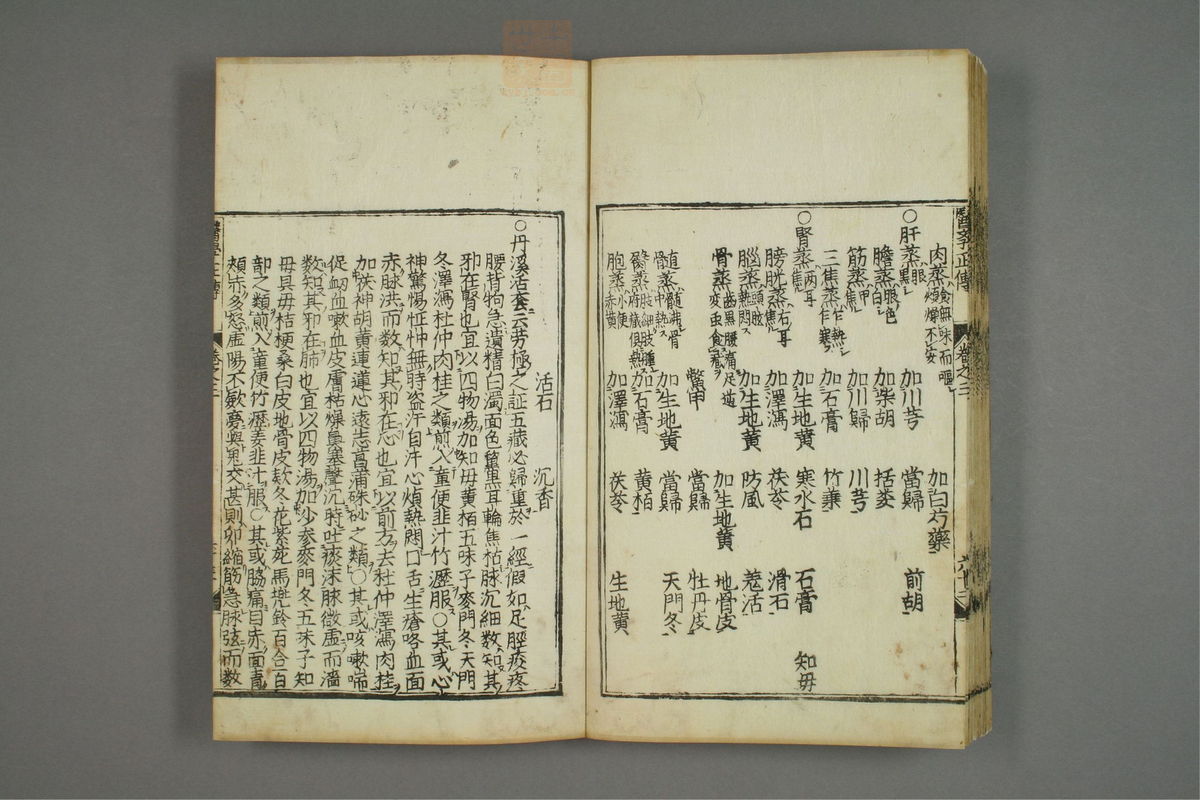 醫學正傳 卷之三 六十三
加白芍藥
肉蒸食無味而嘔煩燥不安 加川芎 當歸 前胡
○肝蒸眼黑 加柴胡 括蔞
膽蒸眼色白 加川歸 川芎
筋蒸甲焦
三焦蒸乍熱乍寒 加石膏 竹葉
○腎蒸兩耳焦 加生地黄 寒水石 石膏 知母
膀胱蒸右耳焦 加澤瀉 茯苓 滑石
腦蒸頭眩熱悶 加生地黄 防風 羗活
骨蒸齒黑腰痛足逆變疳食臟 加生地黄 地骨皮
鱉甲 當歸 牡丹皮
髓蒸髓沸骨中熱 加生地黄 當歸 天門冬
臀蒸肢細趺腫府臟俱熱 加石膏 黄栢
胞蒸小便赤黄 加澤瀉 茯苓 生地黄
活石 沉香
○丹溪活套云勞極之証五藏必歸重於一經假如足脛痠疼
腰背拘急遺精白濁面色黧黑耳輪焦枯脉沉細数知其
邪在腎也宜以四物湯加知毋黄栢五味子麥門冬天門
冬澤瀉杜仲肉桂之類煎入童便韭汁竹瀝服○其或心
神驚惕怔忡無時盗汗自汗心煩熱悶口舌生瘡咯血面
赤脉洪而数知其邪在心也宜以前方去杜仲澤瀉肉桂
加茯神胡黄連蓮心遠志菖蒲硃砂之類○其或咳嗽喘
促衂血嗽血皮膚枯燥鼻塞聲沉時吐痰沫脉微虚而濇
数知其邪在肺也宜以四物湯加沙参麥門冬五味子知
毋貝毋桔梗桑白皮地骨皮欵冬花紫菀馬兠鈴百合百
部之類煎入童便竹瀝姜韭汁服○其或脇痛目赤面青
頰赤多怒虚陽不歛夢與鬼交甚則卵縮筋急脉弦而数
醫學正傳 卷之三